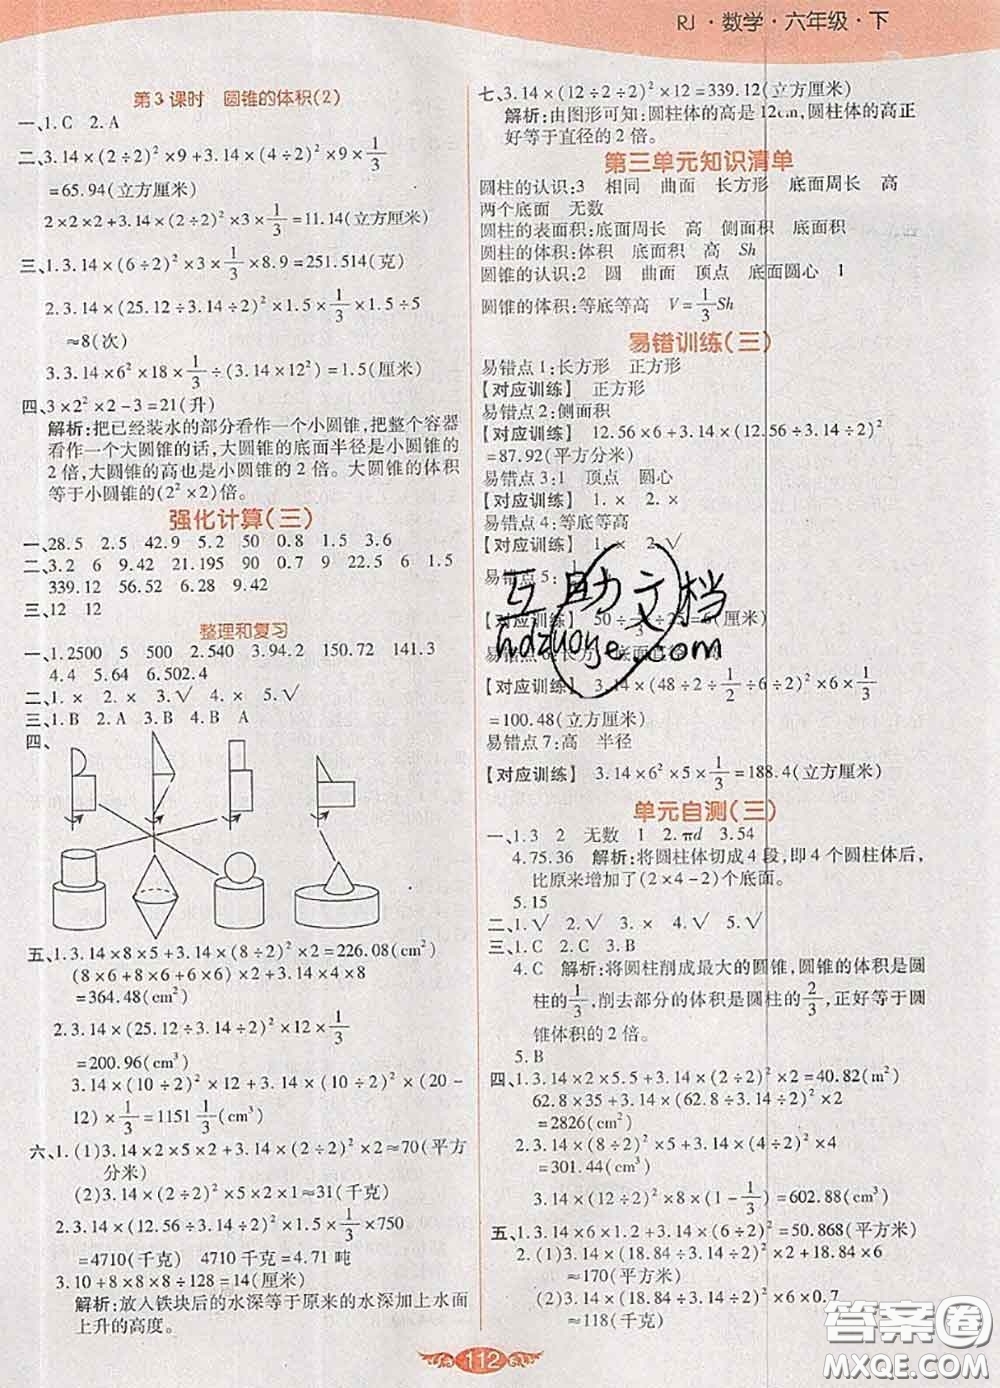 RJ·数学·六年级·下
第3课时 圆锥的体积(2)
一、1.C 2.A
二、3.14×(2÷2)²×9+3.14×(4÷2)²×9×1/3
=65.94(立方厘米)
2×2×2+3.14×(2÷2)²×3×1/3=11.14(立方厘米)
三、1.3.14×(6÷2)²×3×1/3×8.9=251.514(克)
2.3.14×(25.12÷3.14÷2)²×1.5×1/3×1.5÷5
≈8(次)
3.3.14×6²×18×1/3÷(3.14×12²)=1.5(厘米)
四、3×2²×2-3=21(升)
解析:把已经装水的部分看作一个小圆锥,把整个容器
看作一个大圆锥的话,大圆锥的底面半径是小圆锥的
2倍,大圆锥的高也是小圆锥的2倍。大圆锥的体积
等于小圆锥的(2²×2)倍。
强化计算(三)
一、28.5 2.5 42.9 5.2 50 0.8 1.5 3.6
二、3.2 6 9.42 21.195 90 0.9 22.5 6 1.5
339.12 56.52 6.28 9.42
三、12 12
整理和复习
一、1.2500 5 500 2.540 3.94.2 150.72 141.3
4.4 5.64 6.502.4
二、1.× 2.× 3.√ 4.× 5.√
三、1.B 2.A 3.B 4.B A
四、
五、1.3.14×8×5+3.14×(8÷2)²×2=226.08(cm²)
(8×6+8×6+6×6)×2+3.14×4×8
=364.48(cm²)
2.3.14×(25.12÷3.14÷2)²×12×1/3
=200.96(cm³)
3.14×(10÷2)²×12+3.14×(10÷2)²×(20-
12)×1/3=1151 1/3(cm³)
六、1.(1)3.14×2×5×2+3.14×(2÷2)²×2≈70(平方
分米)
(2)3.14×(2÷2)²×5×2×1≈31(千克)
2.3.14×(12.56÷3.14÷2)²×1.5×1/3×750
=4710(千克) 4710千克=4.71吨
3.10+8×8×8÷128=14(厘米)
解析:放入铁块后的水深等于原来的水深加上水面
上升的高度。
七、3.14×(12÷2÷2)²×12=339.12(立方厘米)
解析:由图形可知:圆柱体的高是12cm,圆柱体的高正
好等于直径的2倍。
第三单元知识清单
圆柱的认识:3 相同 曲面 长方形 底面周长 高
两个底面 无数
圆柱的表面积:底面周长 高 侧面积 底面积
圆柱的体积:体积 底面积 高 Sh
圆锥的认识:2 圆 曲面 顶点 底面圆心 1
圆锥的体积:等底等高 V=1/3Sh
易错训练(三)
易错点1:长方形 正方形
【对应训练】 正方形
易错点2:侧面积
【对应训练】 12.56×6+3.14×(12.56÷3.14÷2)²
=87.92(平方分米)
易错点3:1 顶点 圆心
【对应训练】 1.× 2.×
易错点4:等底等高
【对应训练】 1.× 2.√
易错点5:
【对应训练】 50÷1/3÷25=6(厘米)
易错点6:长方
【对应训练】 3.14×(48÷2÷1/2÷6÷2)²×6×1/3
=100.48(立方厘米)
易错点7:高 半径
【对应训练】 3.14×6²×5×1/3=188.4(立方厘米)
单元自测(三)
一、1.3 2 无数 1 2.πd 3.54
4.75.36 解析:将圆柱体切成4段,即4个圆柱体后,
比原来增加了(2×4-2)个底面。
5.15
二、1.√ 2.× 3.√ 4.× 5.√
三、1.C 2.C 3.B
4.C 解析:将圆柱削成最大的圆锥,圆锥的体积是圆
柱的1/3,削去部分的体积是圆柱的2/3,正好等于圆
锥体积的2倍。
5.B
四、1.3.14×2×5.5+3.14×(2÷2)²×2=40.82(m²)
62.8×35+3.14×(62.8÷3.14÷2)²×2
=2826(cm²)
2.3.14×(8÷2)²×5+3.14×(4÷2)²×4
=301.44(cm³)
3.14×(12÷2)²×8×(1-1/3)=602.88(cm³)
五、1.3.14×6×1.2+3.14×(6÷2)²=50.868(平方米)
2.(1)3.14×(18.84÷3.14÷2)²×2+18.84×6
≈170(平方米)
(2)3.14×(18.84÷3.14÷2)²×6×0.7
≈118(千克)
互助文档
hdzuoye.com
112
答案圈
MXQE.COM